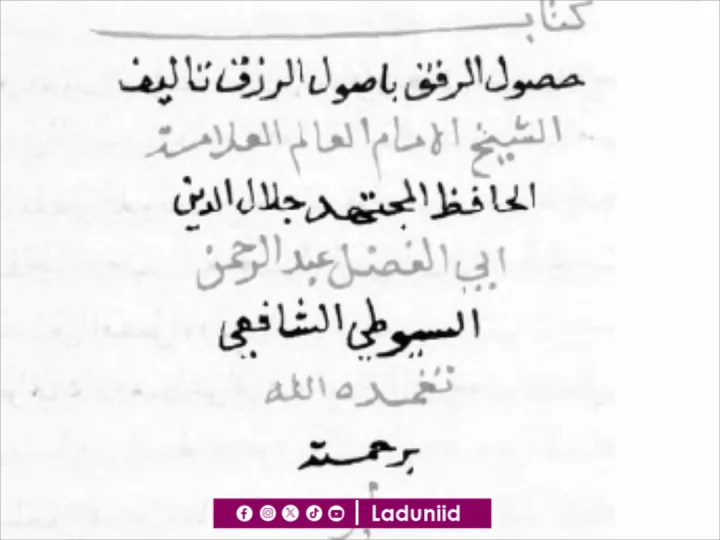 كتاب
حصول الرفق باصول الرزق تاليف
الشيخ الامام العالم العلامة
الحافظ المجتهد جلال الدين
ابي الفضل عبد الرحمن
السيوطي الشافعي
تغمده الله
برحمته
Laduniid